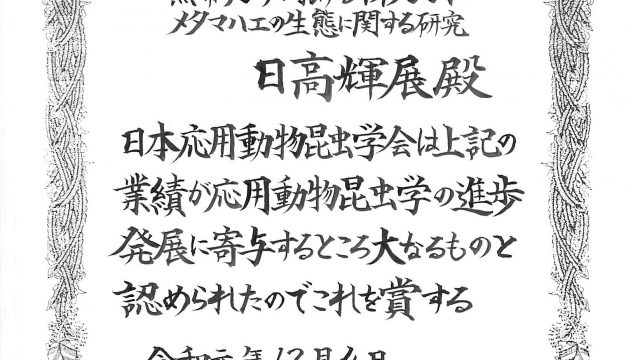 メタマハエの生態に関する研究
日高輝展殿
日本応用動物昆虫学会は上記の
業績が応用動物昆虫学の進歩
発展に寄与するところ大なるものと
認められたのでこれを賞する
令和元年12月